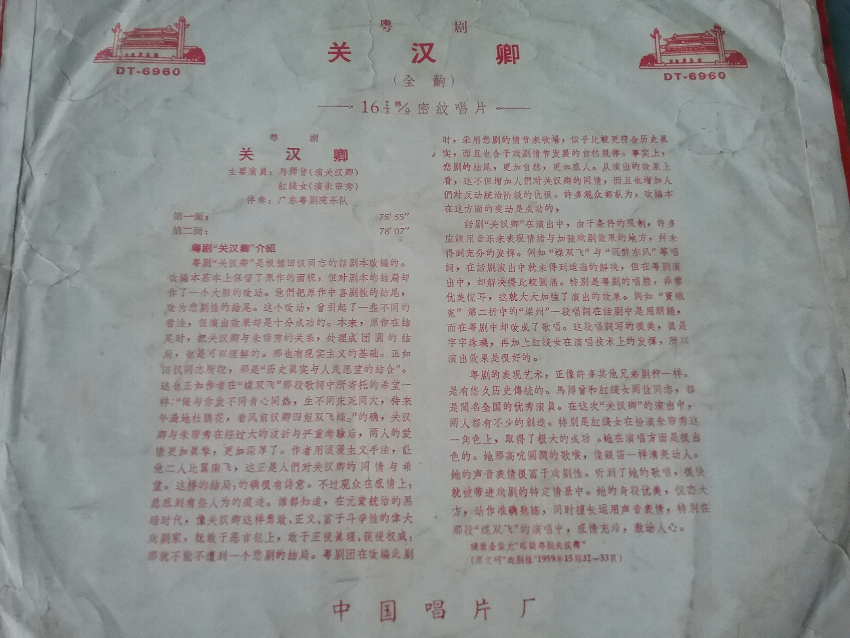 粤 剧
关 汉 卿
(全 齣)
16⅔转/分 密纹唱片
DT-6960
DT-6960
粤 剧
关 汉 卿
主要演員：馬师曾(演关汉卿)
紅綫女(演朱帘秀)
伴奏：广东粤剧院乐队
第一面： 75′ 55″
第二面： 78′ 07″
粤剧“关汉卿”介紹
粤剧“关汉卿”是根据田汉同志的話剧本改編的。
改編本基本上保留了原作的面貌，但对剧本的結局却
作了一个大胆的改动。他們把原作中喜剧性的結尾，
改为悲剧性的結尾。这个改动，曾引起了一些不同的
看法，但演出效果却是十分成功的。本来，原作在結
尾时，把关汉卿与朱帘秀的关系，处理成团圓的結
局，也是可以理解的。那也有现实主义的基础。正如
田汉同志所說，那是“历史眞实与人民愿望的結合”。
这也正如作者在“蝶双飞”那段歌詞中所寄托的希望一
样：“俺与你发不同青心同热，生不同床死同穴，待来
年遍地杜鵑花，看风前汉卿四姐双飞蝶。”的确，关汉
卿与朱帘秀在經过大的波折与严重考驗后，两人的爱
情更加眞摯，更加深厚了。作者用浪漫主义手法，让
他二人比翼南飞，这正是人們对关汉卿的同情与希
望。这样的結局，的确很有詩意。不过观众在感情上，
总感到有些人为的痕迹。誰都知道，在元蒙統治的黑
暗时代，像关汉卿这样勇敢、正义、富于斗爭性的伟大
戏剧家，既敢于惡言怒上，敢于正視眞理、藐視权威，
那就不能不遭到一个悲剧的結局。粤剧团在改編此剧
时，采用悲剧的情节来收場，似乎比較更符合历史眞
实，而且也合于戏剧情节发展的自然規律。事实上，
悲剧的結尾，更加自然，更加感人。从演出的效果上
看，这不但增加人們对关汉卿的同情，而且也增加人
們对反动統治阶級的仇恨。许多观众都认为，改編本
在这方面的变动是成功的。
話剧“关汉卿”在演出中，由于条件的限制，许多
应該用音乐来表现情緒与加強戏剧效果的地方，幷未
得到充分的发揮。例如“蝶双飞”与“沉醉东风”等唱
詞，在話剧演出中就未得到适当的解决，但在粤剧演
出中，却解决得比較圓滿。特别是粤剧的唱腔，非常
优美悅耳，这就大大加強了演出的效果。例如“竇娥
冤”第二折中的“梁州”一段唱詞在話剧中是用朗誦，
而在粤剧中却改成了歌唱。这段唱詞写的很美，眞是
字字珠璣，再加上紅綫女在演唱技术上的发揮，所以
演出效果是很好的。
粤剧的表现艺术，正像许多其他兄弟剧种一样，
是有悠久历史傳統的。馬师曾和紅綫女两位同志，都
是聞名全国的优秀演員。在这次“关汉卿”的演出中，
两人都有不少的創造。特别是紅綫女在扮演朱帘秀这
一角色上，取得了极大的成功。她在演唱方面是很出
色的。她那高吭圓潤的歌喉，像銀笛一样清亮动人。
她的声音表情很富于戏剧性。听到了她的歌唱，很快
就被带进戏剧的特定情景中。她的身段优美，仪态大
方，动作准确熟練，同时擅长运用声音表情，特别在
那段“蝶双飞”的演唱中，感情充沛，激动人心。
(原文刊“戏剧报”1959年15期32—33頁)
中 国 唱 片 厂